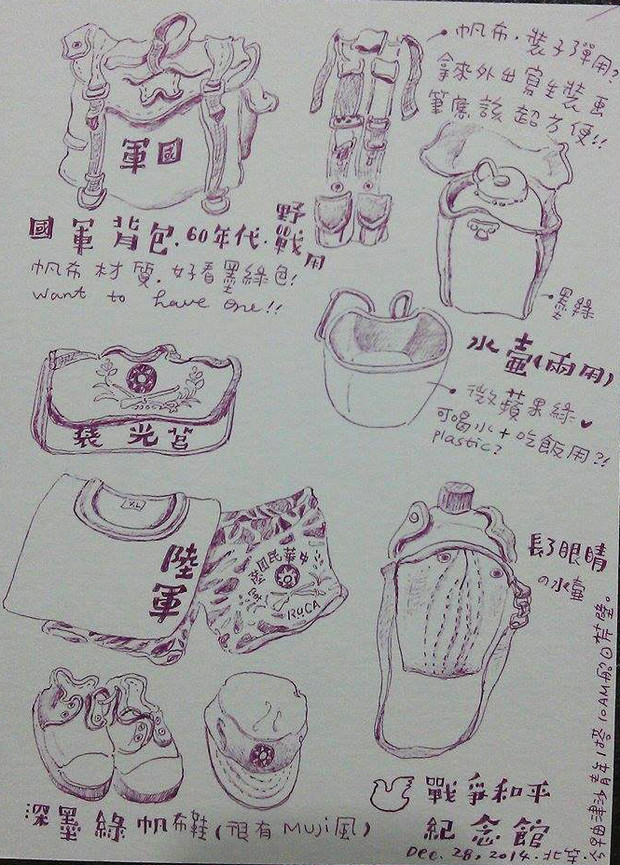 帆布．裝子彈用?
拿來外出寫生裝畫
筆應該超方便!!
國軍
國軍背包．60年代．野戰用
帆布材質．好看墨綠色!
want to have one!!
墨綠
水壺(兩用)
微蘋果綠
可喝水+吃飯用?!
plastic?
莒光袋
XL
陸軍
中華民國陸
ROCA
長了眼睛
の水壺
深墨綠帆布鞋(很有MUJI風)
戰爭和平
紀念館
Dec. 28. 2014. 北竿.